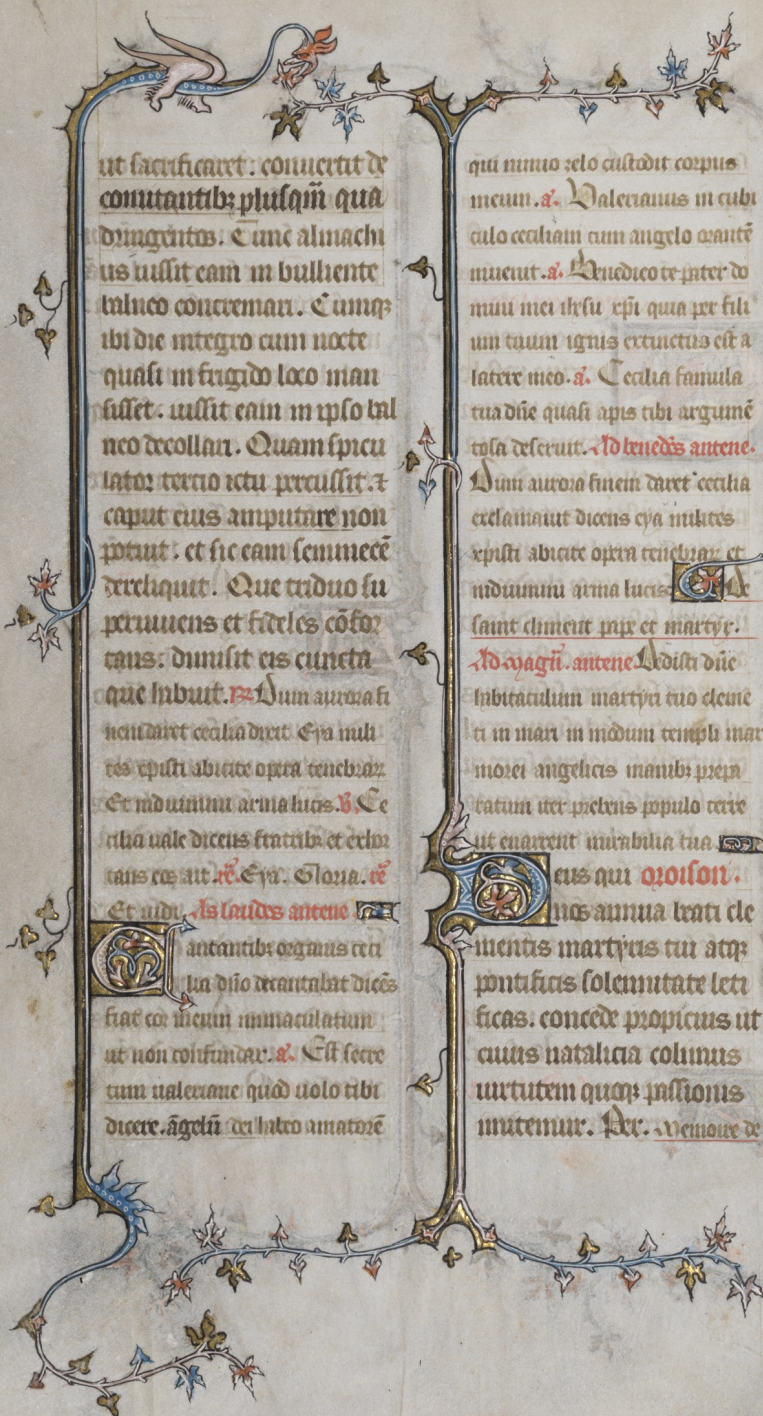 ut sacrificaret: conuertit de
comitantibꝫ plusqm̄ qua
dringentos. Tunc almachi
us iussit eam in bulliente
balneo concremari. Cumqꝫ
ibi die integro cum nocte
quasi in frigido loco man
sisset. iussit eam in ipso bal
neo decollari. Quam spicu
lator tercio ictu percussit. ⁊
caput eius amputare non
potuit. et sic eam seminecē
dereliquit. Que triduo su
peruiuens et fideles cōfor
tans: dimisit eis cuncta
que habuit. Dum aurora fi
nem daret cecilia dixit Eya mili
tes xpisti abicite opera tenebraꝝ
Et induimini arma lucis. V̄. Ce
cilia uale dicens fratribꝫ et exhor
tans eos ait. rē. Eya. Gloria. rē
Et indui. As laudes antene
Cantantibꝫ organis ceci
lia dn̄o decantabat dicēs
fiat cor meum immaculatum
ut non confundar. a. Est secre
tum ualeriane quod uolo tibi
dicere. āgelū dei habeo amatorē
qui nimio zelo custodit corpus
meum. a. Valerianus in cubi
culo ceciliam cum angelo orantē
inuenit. a. Benedico te pater do
mini mei ihesu xp̄i quia per fili
um tuum ignis extinctus est a
latere meo. a. Cecilia famula
tua dn̄e quasi apis tibi argumē
tosa deseruit. Ad benedēs antene.
Dum aurora finem daret cecilia
exclamauit dicens eya milites
xpisti abicite opera tenebraꝝ et
induimini arma lucis De
saint climent pape et martyr.
Ad magn̄. antene Dedisti dn̄e
habitaculum martyri tuo cleme
ti in mari in modum templi mar
morei angelicis manibꝫ prepa
ratum iter prebens populo terre
ut enarrent mirabilia tua
Deus qui oroison.
nos annua beati cle
mentis martyris tui atqꝫ
pontificis solennitate leti
ficas. concede propicius ut
cuius natalicia colimus
uirtutem quoqꝫ passionis
imitemur. Per. Memoire de